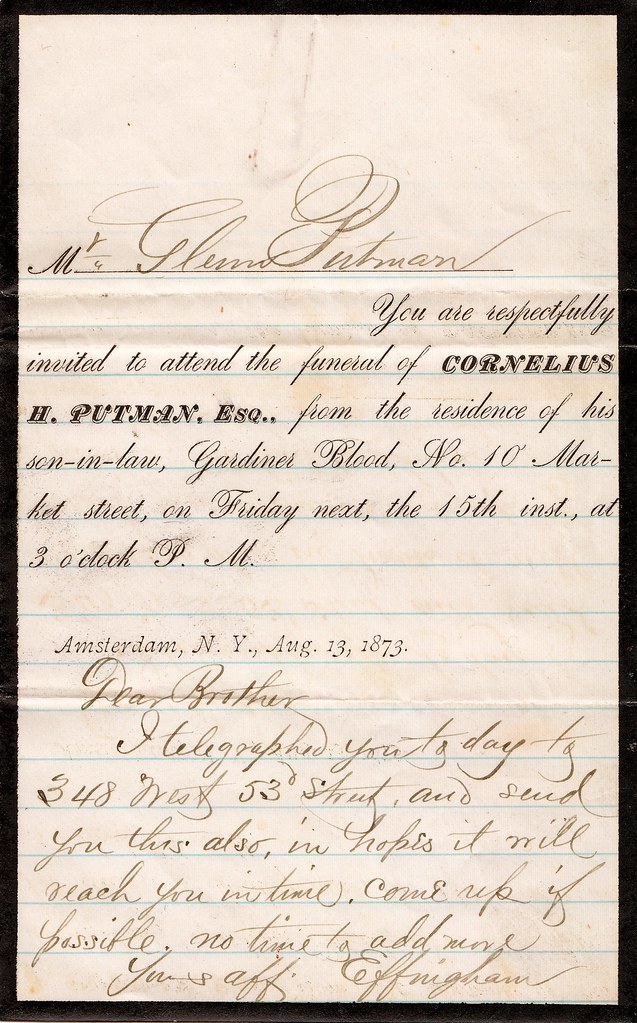 Mr. Glenn Putman
You are respectfully
invited to attend the funeral of CORNELIUS
H. PUTMAN, Esq., from the residence of his
son-in-law, Gardiner Blood, No. 10 Mar-
ket street, on Friday next, the 15th inst., at
3 o'clock P. M.
Amsterdam, N. Y., Aug. 13, 1873.
Dear Brother
I telegraphed you to day to
348 West 53d Street, and send
you this also, in hopes it will
reach you in time. come up if
possible. no time to add more
Yours aff. Effingham